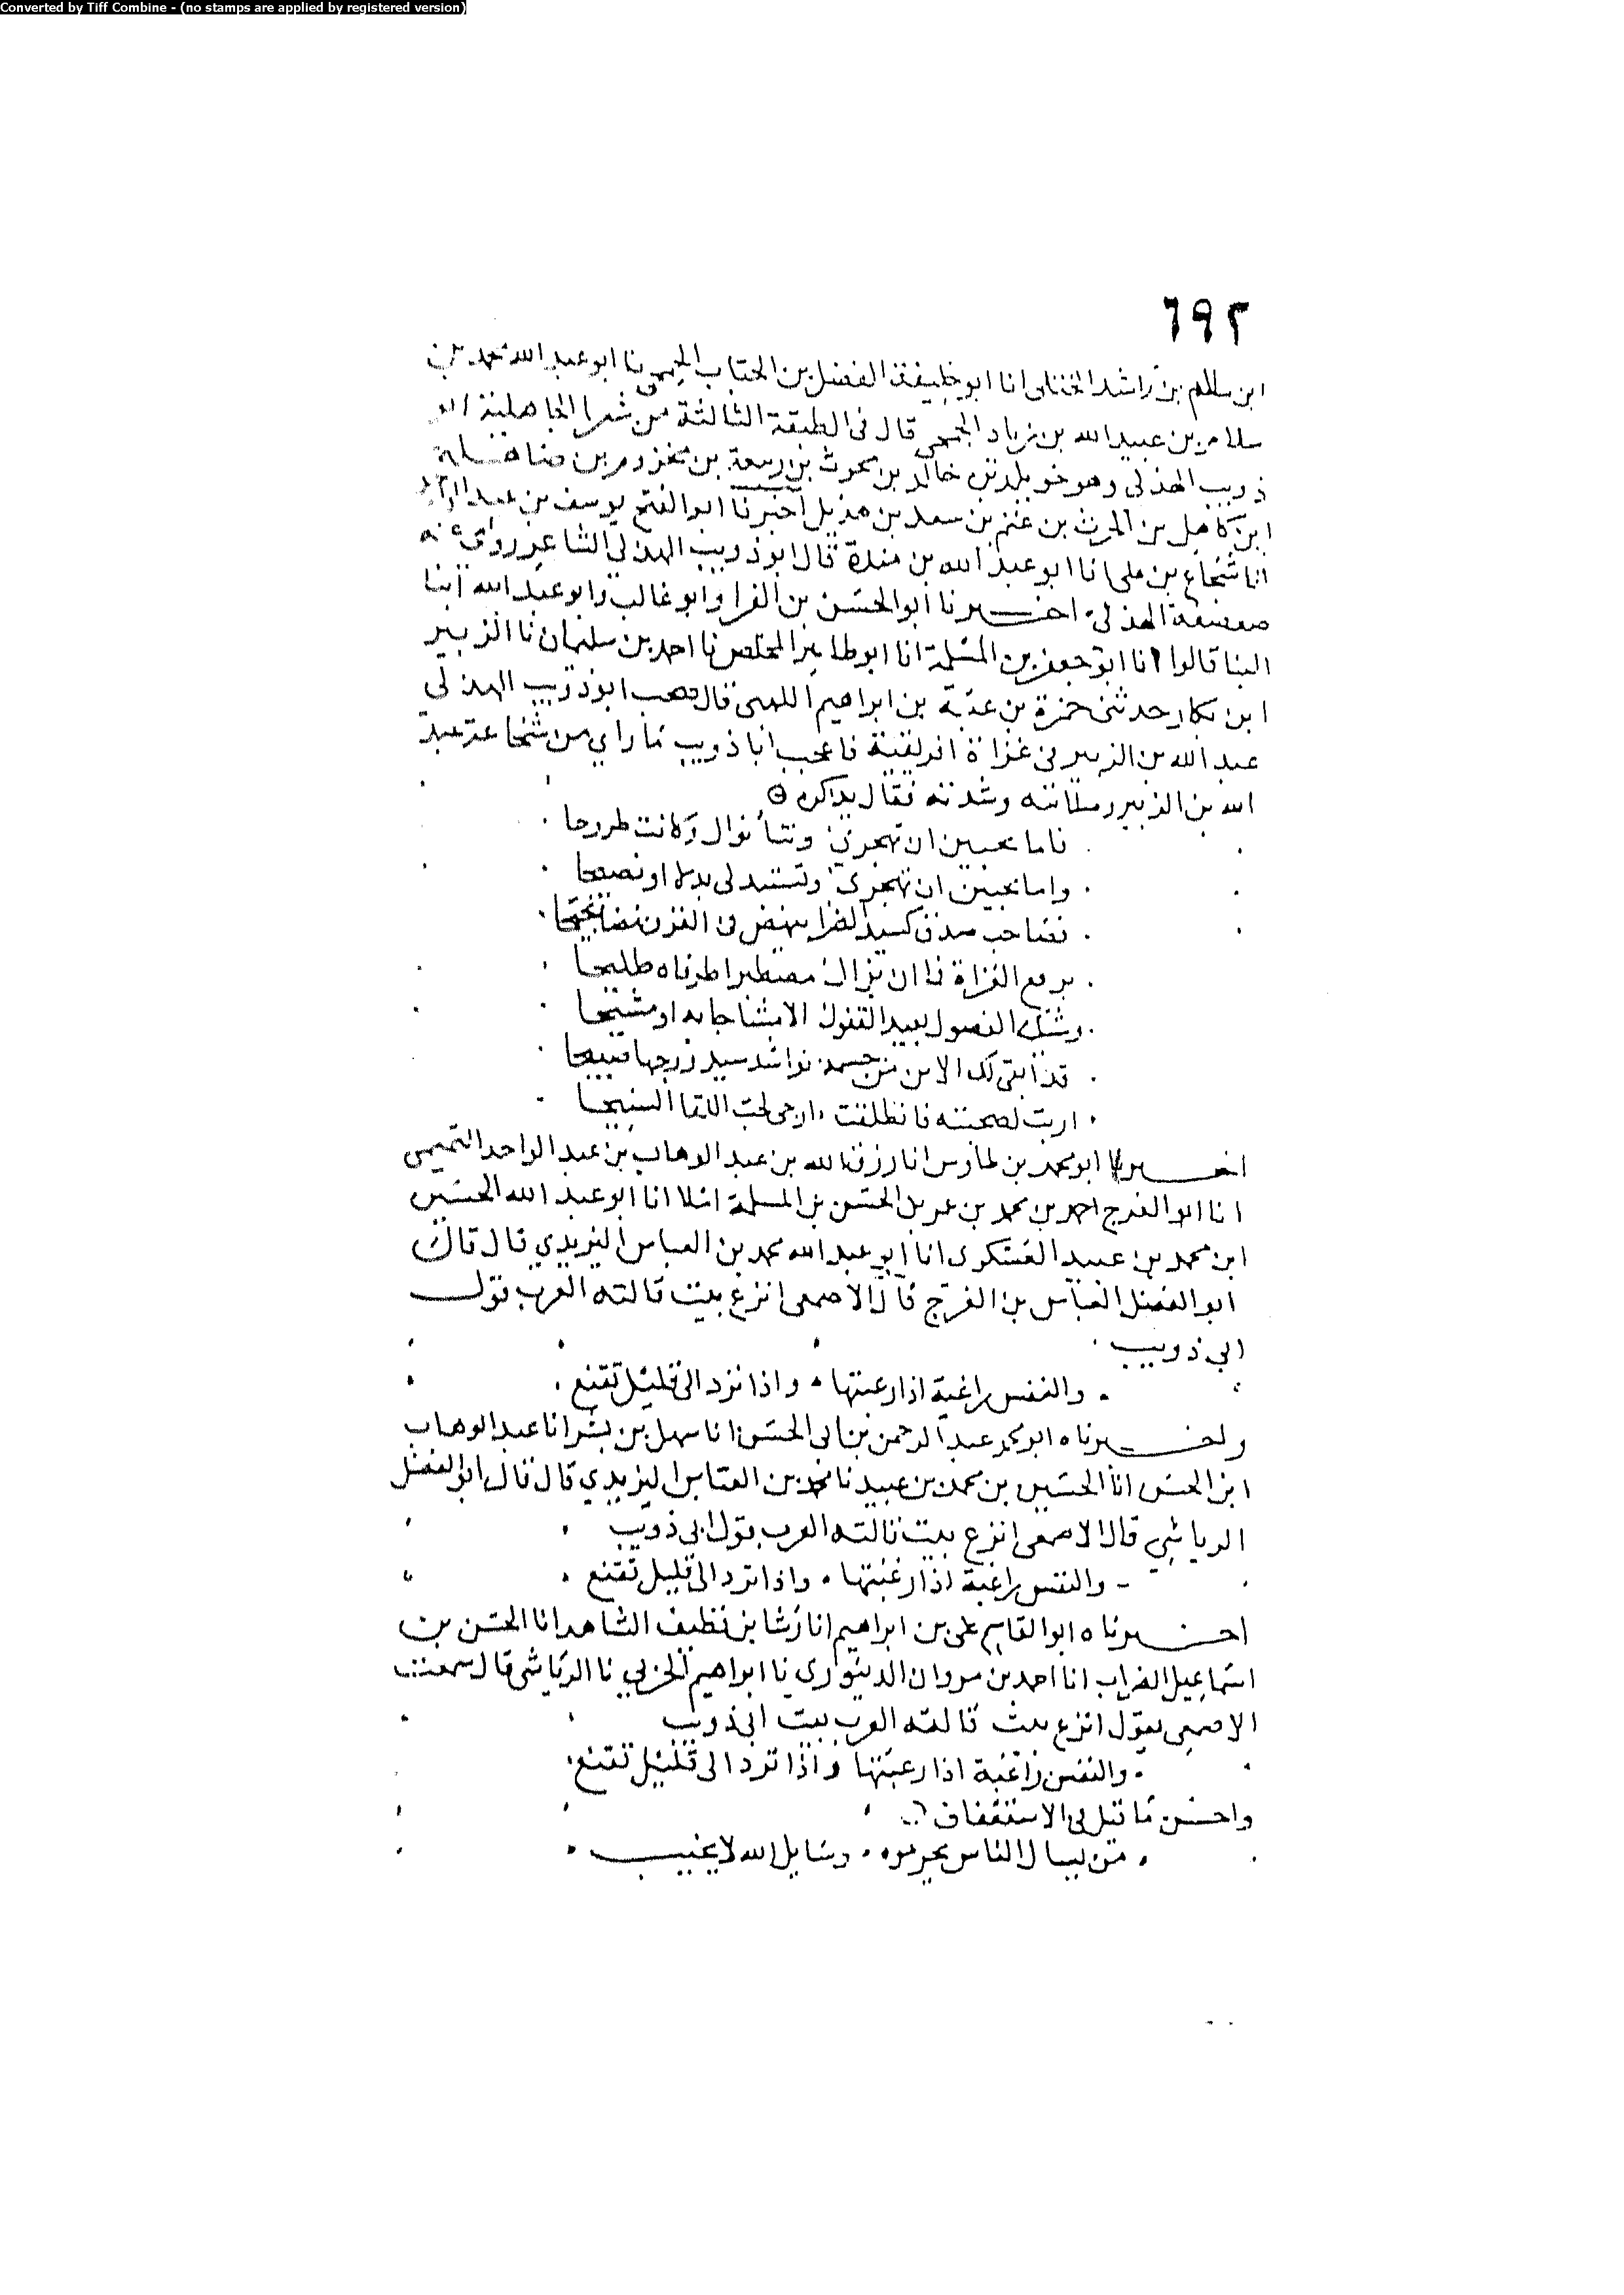 Converted by Tiff Combine - (no stamps are applied by registered version)
٦٩٢
ابن سلم بن راشد الختلى انا ابو خليفة الفضل بن الحباب الجمحى نا ابو عبد الله محمد بن
سلام بن عبيد الله بن زياد الجمحى قال فى الطبقة الثالثة من شعرا الجاهلية ابو
ذويب الهذلى وهو خويلد بن خالد بن محرث بن ربيعة بن مخزوم بن صاهلة
ابن كاهل بن الحرث بن غنم بن سعد بن هذيل اخبرنا ابو الفتح يوسف بن عبد الواحد
انا شجاع بن على انا ابو عبد الله بن مندة قال ابو ذويب الهذلى الشاعر روى عنه
صعصعة الهذلى اخبرنا ابو الحسين بن الفرا وابو غالب وابو عبد الله ابنا
البنا قالوا انا ابو جعفر بن المسلمة انا ابو طاهر المخلص نا احمد بن سليمان نا الزبير
ابن بكار حدثنى حمزة بن عتبة بن ابراهيم اللهبى قال صحب ابو ذويب الهذلى
عبد الله بن الزبير فى غزاة افريقية فاعجب ابا ذويب ما راي من شجاعة عبد
الله بن الزبير وصلاته وشدته فقال يذكره
فاما تحبين ان تهجري وتنأ نوال وكانت طروحا
واما تحبين ان تهجري وتستبدلى بدلا او نصيحا
فصاحب صدق كسيد الضرا ينهض فى الغزو نهضا نجيحا
يريع الغزاة فما ان يزال مضطمرا طرتاه طليحا
وشيك الفصول بعيد القفول الا مشاحا به او مشيحا
قد ابقى لك الاين من جسمه نواشد سيد ووجها صبيحا
اربت لصحبته فانطلقت ارجى لحب اللقا السنيحا
اخبرنا ابو محمد بن طاوس انا رزق الله بن عبد الوهاب بن عبد الواحد التميمى
انا ابو الفرج احمد بن محمد بن عمر بن الحسن بن المسلمة املا انا ابو عبد الله الحسين
ابن محمد بن عبيد العسكرى انا ابو عبد الله محمد بن العباس اليزيدي قال قال
ابو الفضل العباس بن الفرج قال الاصمعى ابرع بيت قالته العرب قول
ابى ذويب
والنفس راغبة اذا رغبتها واذا ترد الى قليل تقنع
واخبرناه ابو محمد عبد الرحمن بن ابى الحسن انا سهل بن بشر انا عبد الوهاب
ابن الحسن انا الحسين بن محمد بن عبيد نا محمد بن العباس اليزيدي قال قال ابو الفضل
الرياشي قال الاصمعى ابرع بيت قالته العرب قول ابى ذويب
والنفس راغبة اذا رغبتها واذا ترد الى قليل تقنع
اخبرناه ابو القاسم على بن ابراهيم انا رشا بن نظيف الشاهد انا الحسن بن
اسماعيل الضراب انا احمد بن مروان الدينوري نا ابراهيم الحربي نا الرياشى قال سمعت
الاصمعى يقول ابرع بيت قالته العرب بيت ابى ذويب
والنفس راغبة اذا رغبتها واذا ترد الى قليل تقنع
واحسن ما قيل فى الاستعفاف
من يسال الناس يحرموه وسايل الله لا يخيب